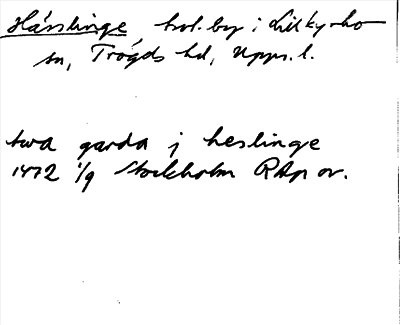 Härslinge, hol. by i Litky-ho
sn, Trögds hd, Upps. l.
twa garda j heslinge
1472 1/9 Stockholm RAp or.